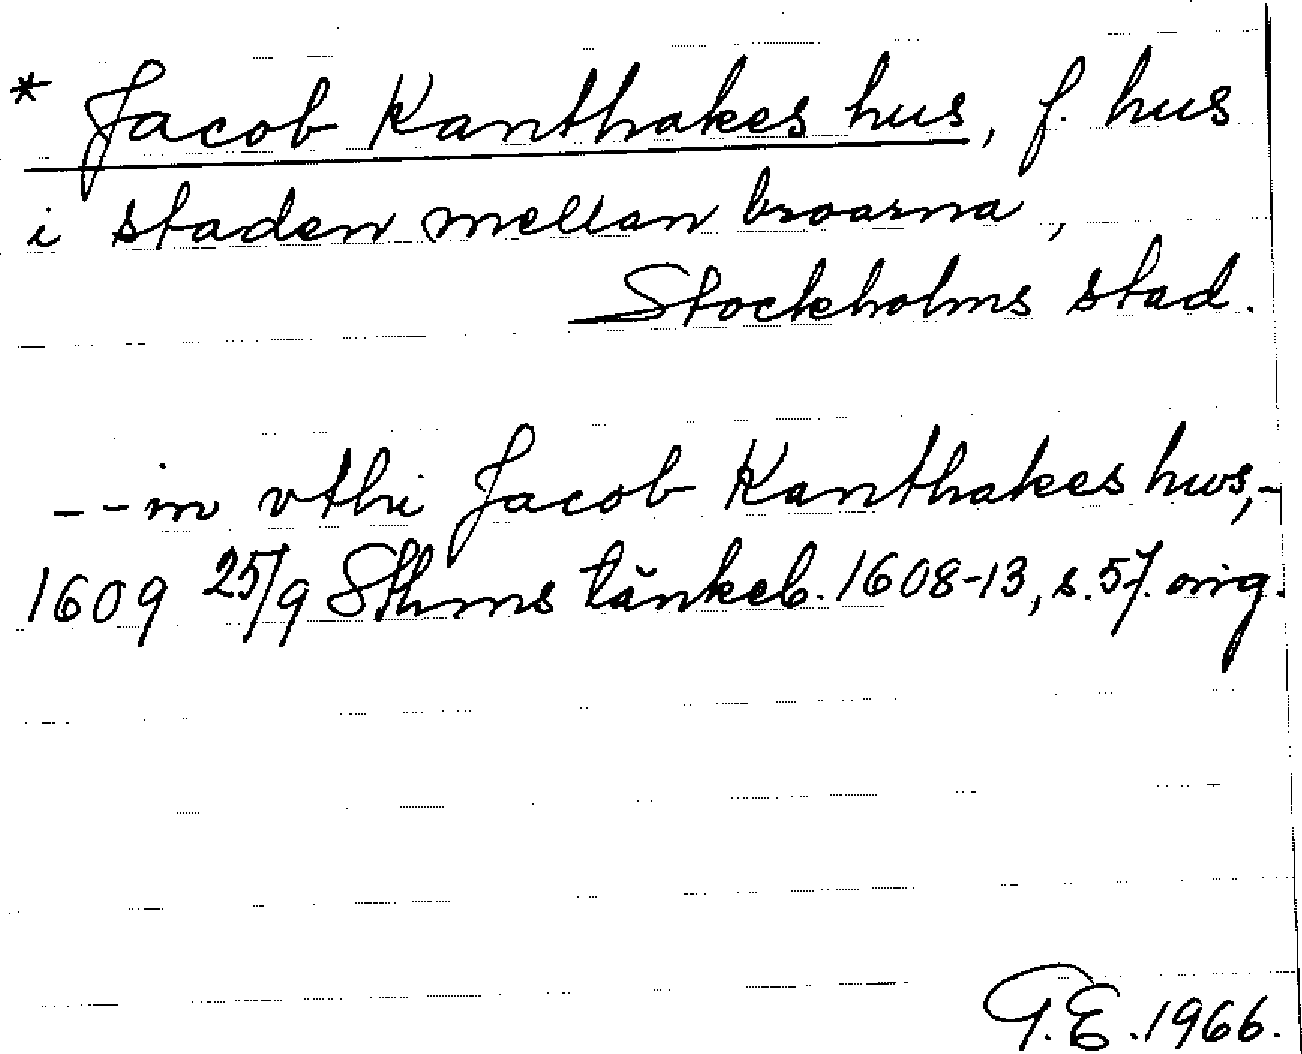 * Jacob Kanthakes hus, f. hus
i staden mellan broarna,
Stockholms stad.
-- in vthi Jacob Kanthakes hws,-
1609 25/9 Sthms tänkeb. 1608-13, s. 57. orig.
G.E. 1966.